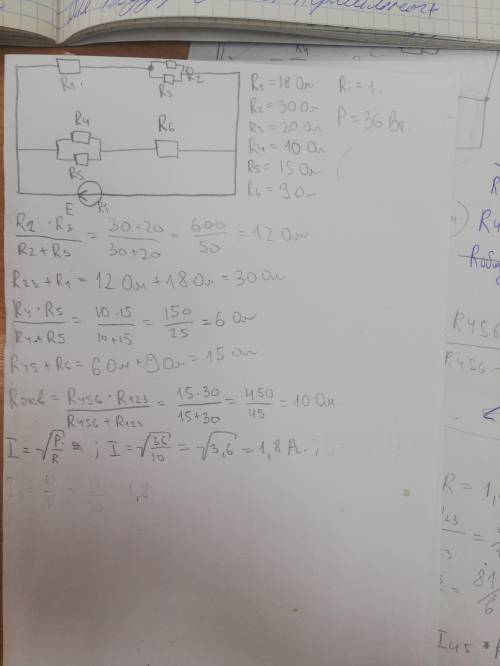 R1.
R3
R2
R4
R5
R6
E
Ri
R1 = 18 Ом
R2 = 30 Ом
R3 = 20 Ом
R4 = 10 Ом
R5 = 15 Ом
R6 = 9 Ом
Ri = 1.
P = 36 Вт.
R2 · R3 / R2 + R3 = 30 · 20 / 30 + 20 = 600 / 50 = 12 Ом
R23 + R1 = 12 Ом + 18 Ом = 30 Ом
R4 · R5 / R4 + R5 = 10 · 15 / 10 + 15 = 150 / 25 = 6 Ом
R45 + R6 = 6 Ом + 9 Ом = 15 Ом
Rэкв = R456 · R123 / R456 + R123 = 15 · 30 / 15 + 30 = 450 / 45 = 10 Ом
I = √P/R ; I = √36/10 = √3,6 = 1,8 А.
R456
R456
R = 1,
81
6
I45